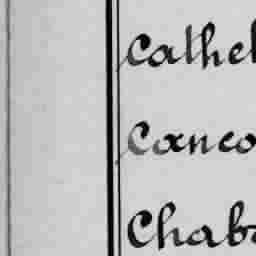 Cathel
Canco
Chaba